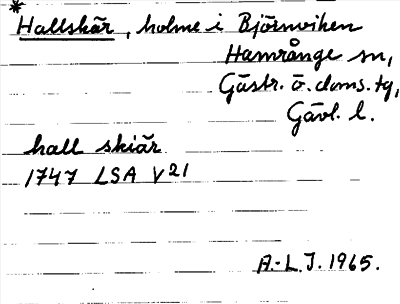 *
Hallskär, holme i Björnviken
Hamrånge sn,
Gästr. ö. doms. tg,
Gävl. l.
hall skiär
1747 LSA V21
A.-L.J. 1965.